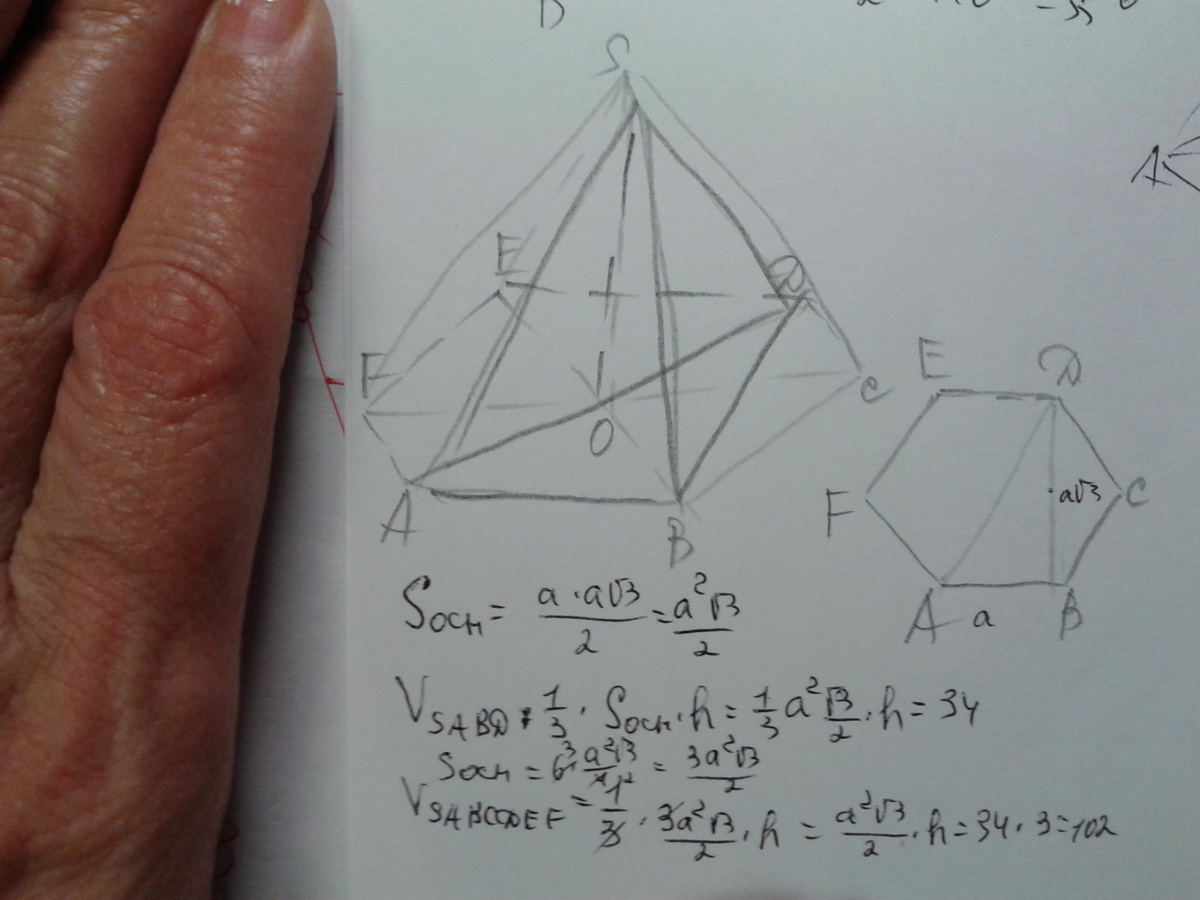 D
S
A
E
D
F
C
O
A
B
E
D
F
a√3
C
A
a
B
Sосн = a·a√3/2 = a²√3/2
V SABD = 1/3 · Sосн · h = 1/3 a² √3/2 · h = 34
Sосн = 6 · a²√3/4 = 3a²√3/2
V SABCDEF = 1/3 · 3a²√3/2 · h = a²√3/2 · h = 34 · 3 = 102